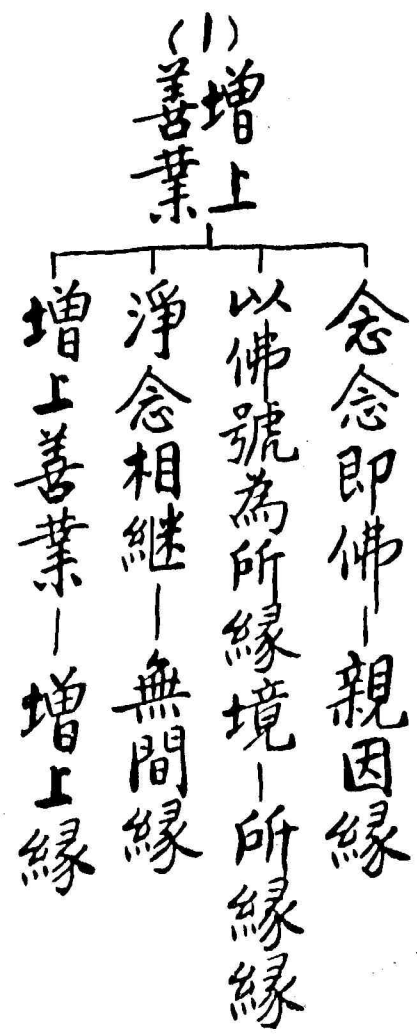 (1)
增上
善業
念念即佛－親因緣
以佛號為所緣境－所緣緣
淨念相繼－無間緣
增上善業－增上緣